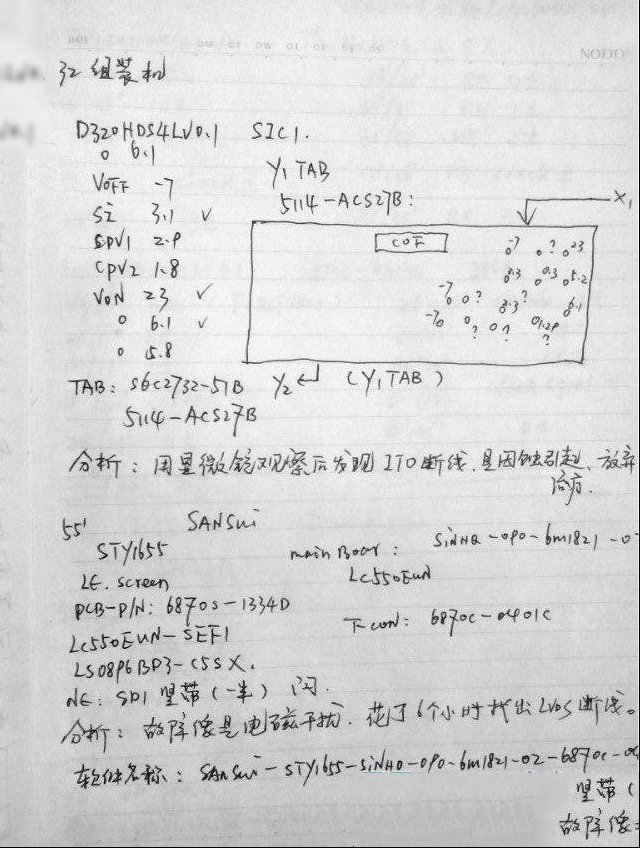 NODO
32组装机
D320HDS4LV0.1 SIC1.
0 6.1
Y1 TAB
VOFF -7
5114-ACS27B:
X1
3.1 ✓
COF
-7 ? 23
2.9
CPV2 1.8
3.3 0.3 5.2
VON 23 ✓
-7 0 ? 3.3 ?
0 6.1 ✓
-7 0 6.1
0 5.8
? ? ?
TAB: S6C2732-51B Y2 (Y1 TAB)
5114-ACS27B
分析: 用显微镜观察后发现ITO断线,是因蚀引起、放弃
治疗.
55' SANSUI
STY1655 main Boar: SINHQ-090-6m1821-0
LE. screen LC550EUN
PCB-P/N: 6870S-1334D
T con: 6870C-0401C
LC550EUN-SEF1
LS0896BP3-C5SX.
NE: SD1 竖带(一半)闪.
分析: 故障像是电磁干扰. 花了6个小时找出LVDS断线。
软件名称: SANSUI-STY1655-SINHQ-090-6m1821-02-6870C-04
竖带(
故障像